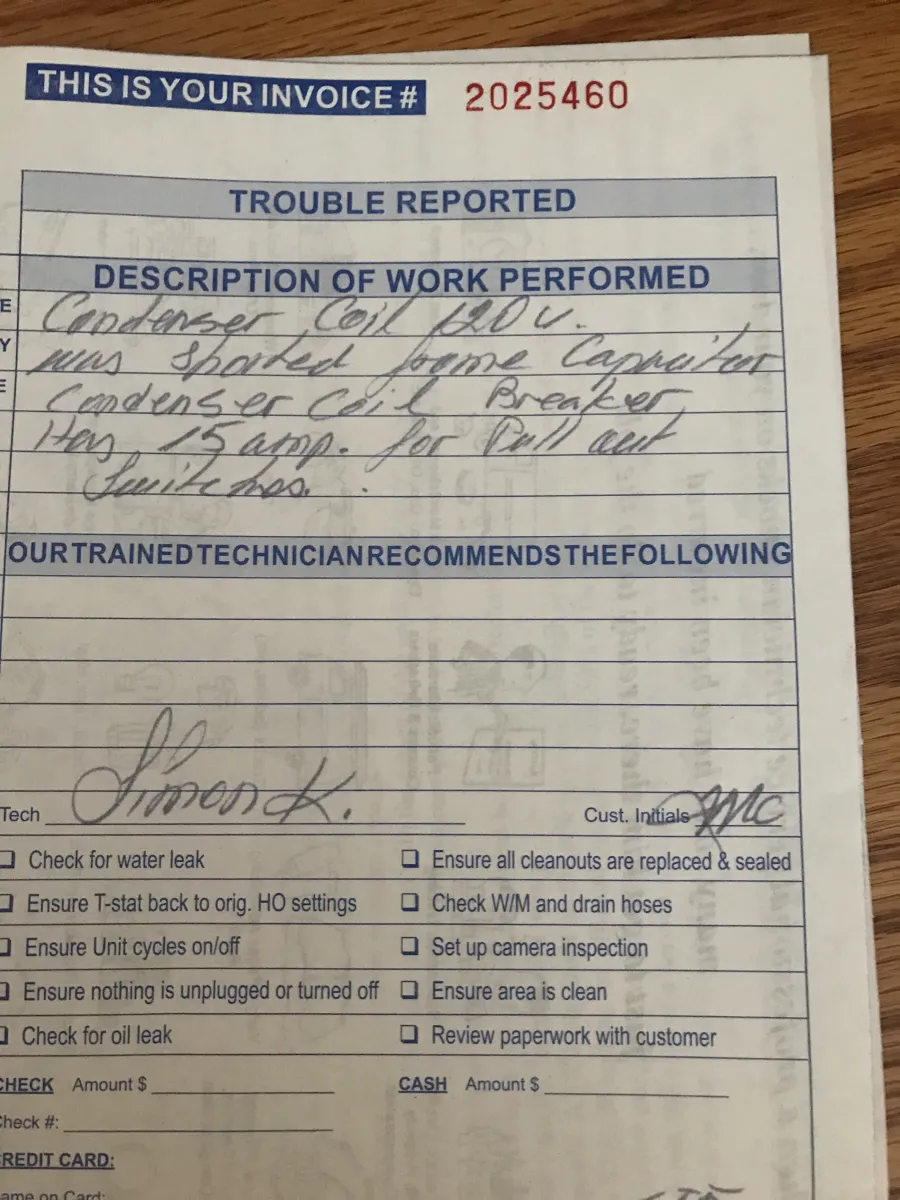 THIS IS YOUR INVOICE # 2025460
TROUBLE REPORTED
DESCRIPTION OF WORK PERFORMED
E
Condenser Coil 120 v.
Y
was Shorted frome Capacitor
E
Condenser Coil Breaker
Has 15 amp. for Pull out
Switches.
OUR TRAINED TECHNICIAN RECOMMENDS THE FOLLOWING
Tech Simon K. Cust. Initials MC
Check for water leak
Ensure all cleanouts are replaced & sealed
Ensure T-stat back to orig. HO settings
Check W/M and drain hoses
Ensure Unit cycles on/off
Set up camera inspection
Ensure nothing is unplugged or turned off
Ensure area is clean
Check for oil leak
Review paperwork with customer
CHECK Amount $
CASH Amount $
Check #:
CREDIT CARD:
Name on Card: